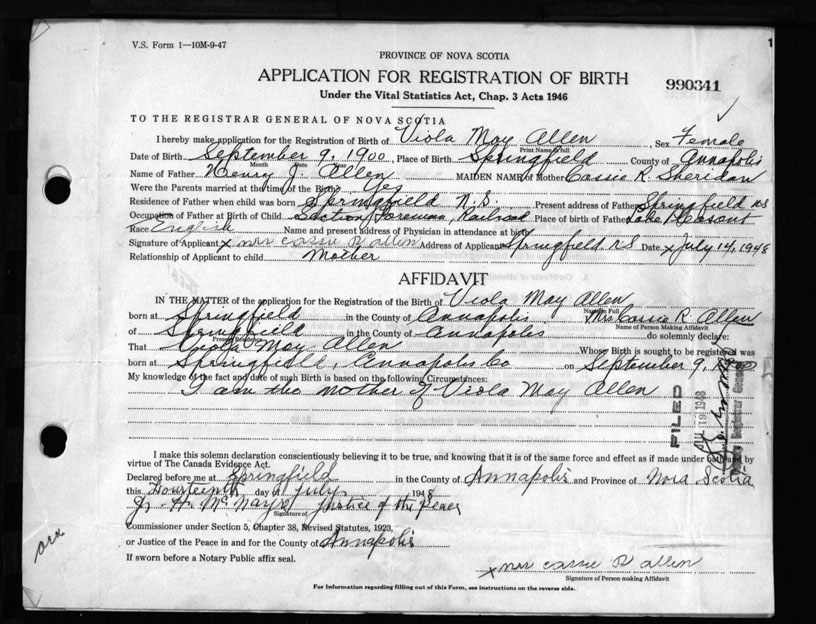 1
V.S. Form 1—10M-9-47
PROVINCE OF NOVA SCOTIA
APPLICATION FOR REGISTRATION OF BIRTH
990341
Under the Vital Statistics Act, Chap. 3 Acts 1946
TO THE REGISTRAR GENERAL OF NOVA SCOTIA
I hereby make application for the Registration of Birth of Viola May Allen, Sex Female
Print Name in full
Date of Birth September 9, 1900, Place of Birth Springfield County of Annapolis
Month Date Year
Name of Father Henry J. Allen MAIDEN NAME of Mother Cassie R. Sheridan
Were the Parents married at the time of the Birth? Yes
Residence of Father when child was born Springfield N.S. Present address of Father Springfield NS
Occupation of Father at Birth of Child Section Foreman, Railroad Place of birth of Father Lake Pleasant
Race English Name and present address of Physician in attendance at birth
Signature of Applicant x mrs cassie R allen Address of Applicant Springfield N.S Date x July 14, 1948
Relationship of Applicant to child Mother
AFFIDAVIT
IN THE MATTER of the application for the Registration of the Birth of Viola May Allen
Name in Full
born at Springfield in the County of Annapolis Mrs Cassie R. Allen
Name of Person Making Affidavit
of Springfield in the County of Annapolis do solemnly declare:
Present Residence
That Viola May Allen Whose Birth is sought to be registered was
born at Springfield, Annapolis Co on September 9, 1900
My knowledge of the fact and date of such Birth is based on the following Circumstances:
I am the mother of Viola May Allen
FILED
JUL 19 1948
Deputy Registrar General
I make this solemn declaration conscientiously believing it to be true, and knowing that it is of the same force and effect as if made under oath and by
virtue of The Canada Evidence Act.
Declared before me at Springfield in the County of Annapolis and Province of Nova Scotia
this Fourteenth day of July 1948
J. H. McNayr Justice of the Peace
Signature of
Commissioner under Section 5, Chapter 38, Revised Statutes, 1923,
or Justice of the Peace in and for the County of Annapolis
If sworn before a Notary Public affix seal.
x mrs cassie R allen
Signature of Person making Affidavit
For Information regarding filling out of this Form, see instructions on the reverse side.